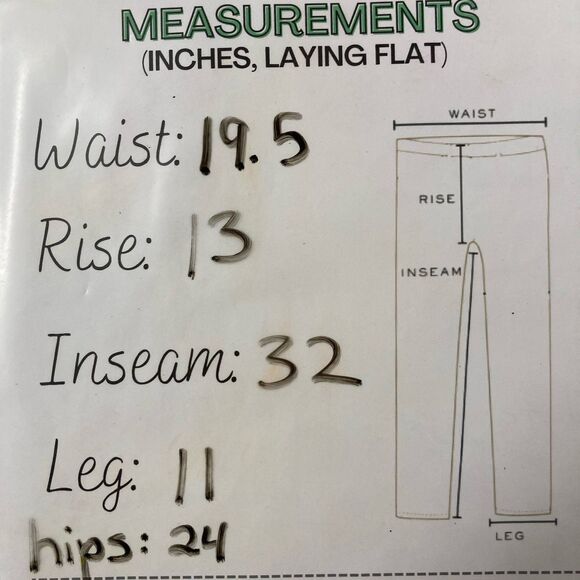 MEASUREMENTS
(INCHES, LAYING FLAT)
Waist: 19.5
Rise: 13
Inseam: 32
Leg: 11
hips: 24
WAIST
RISE
INSEAM
LEG